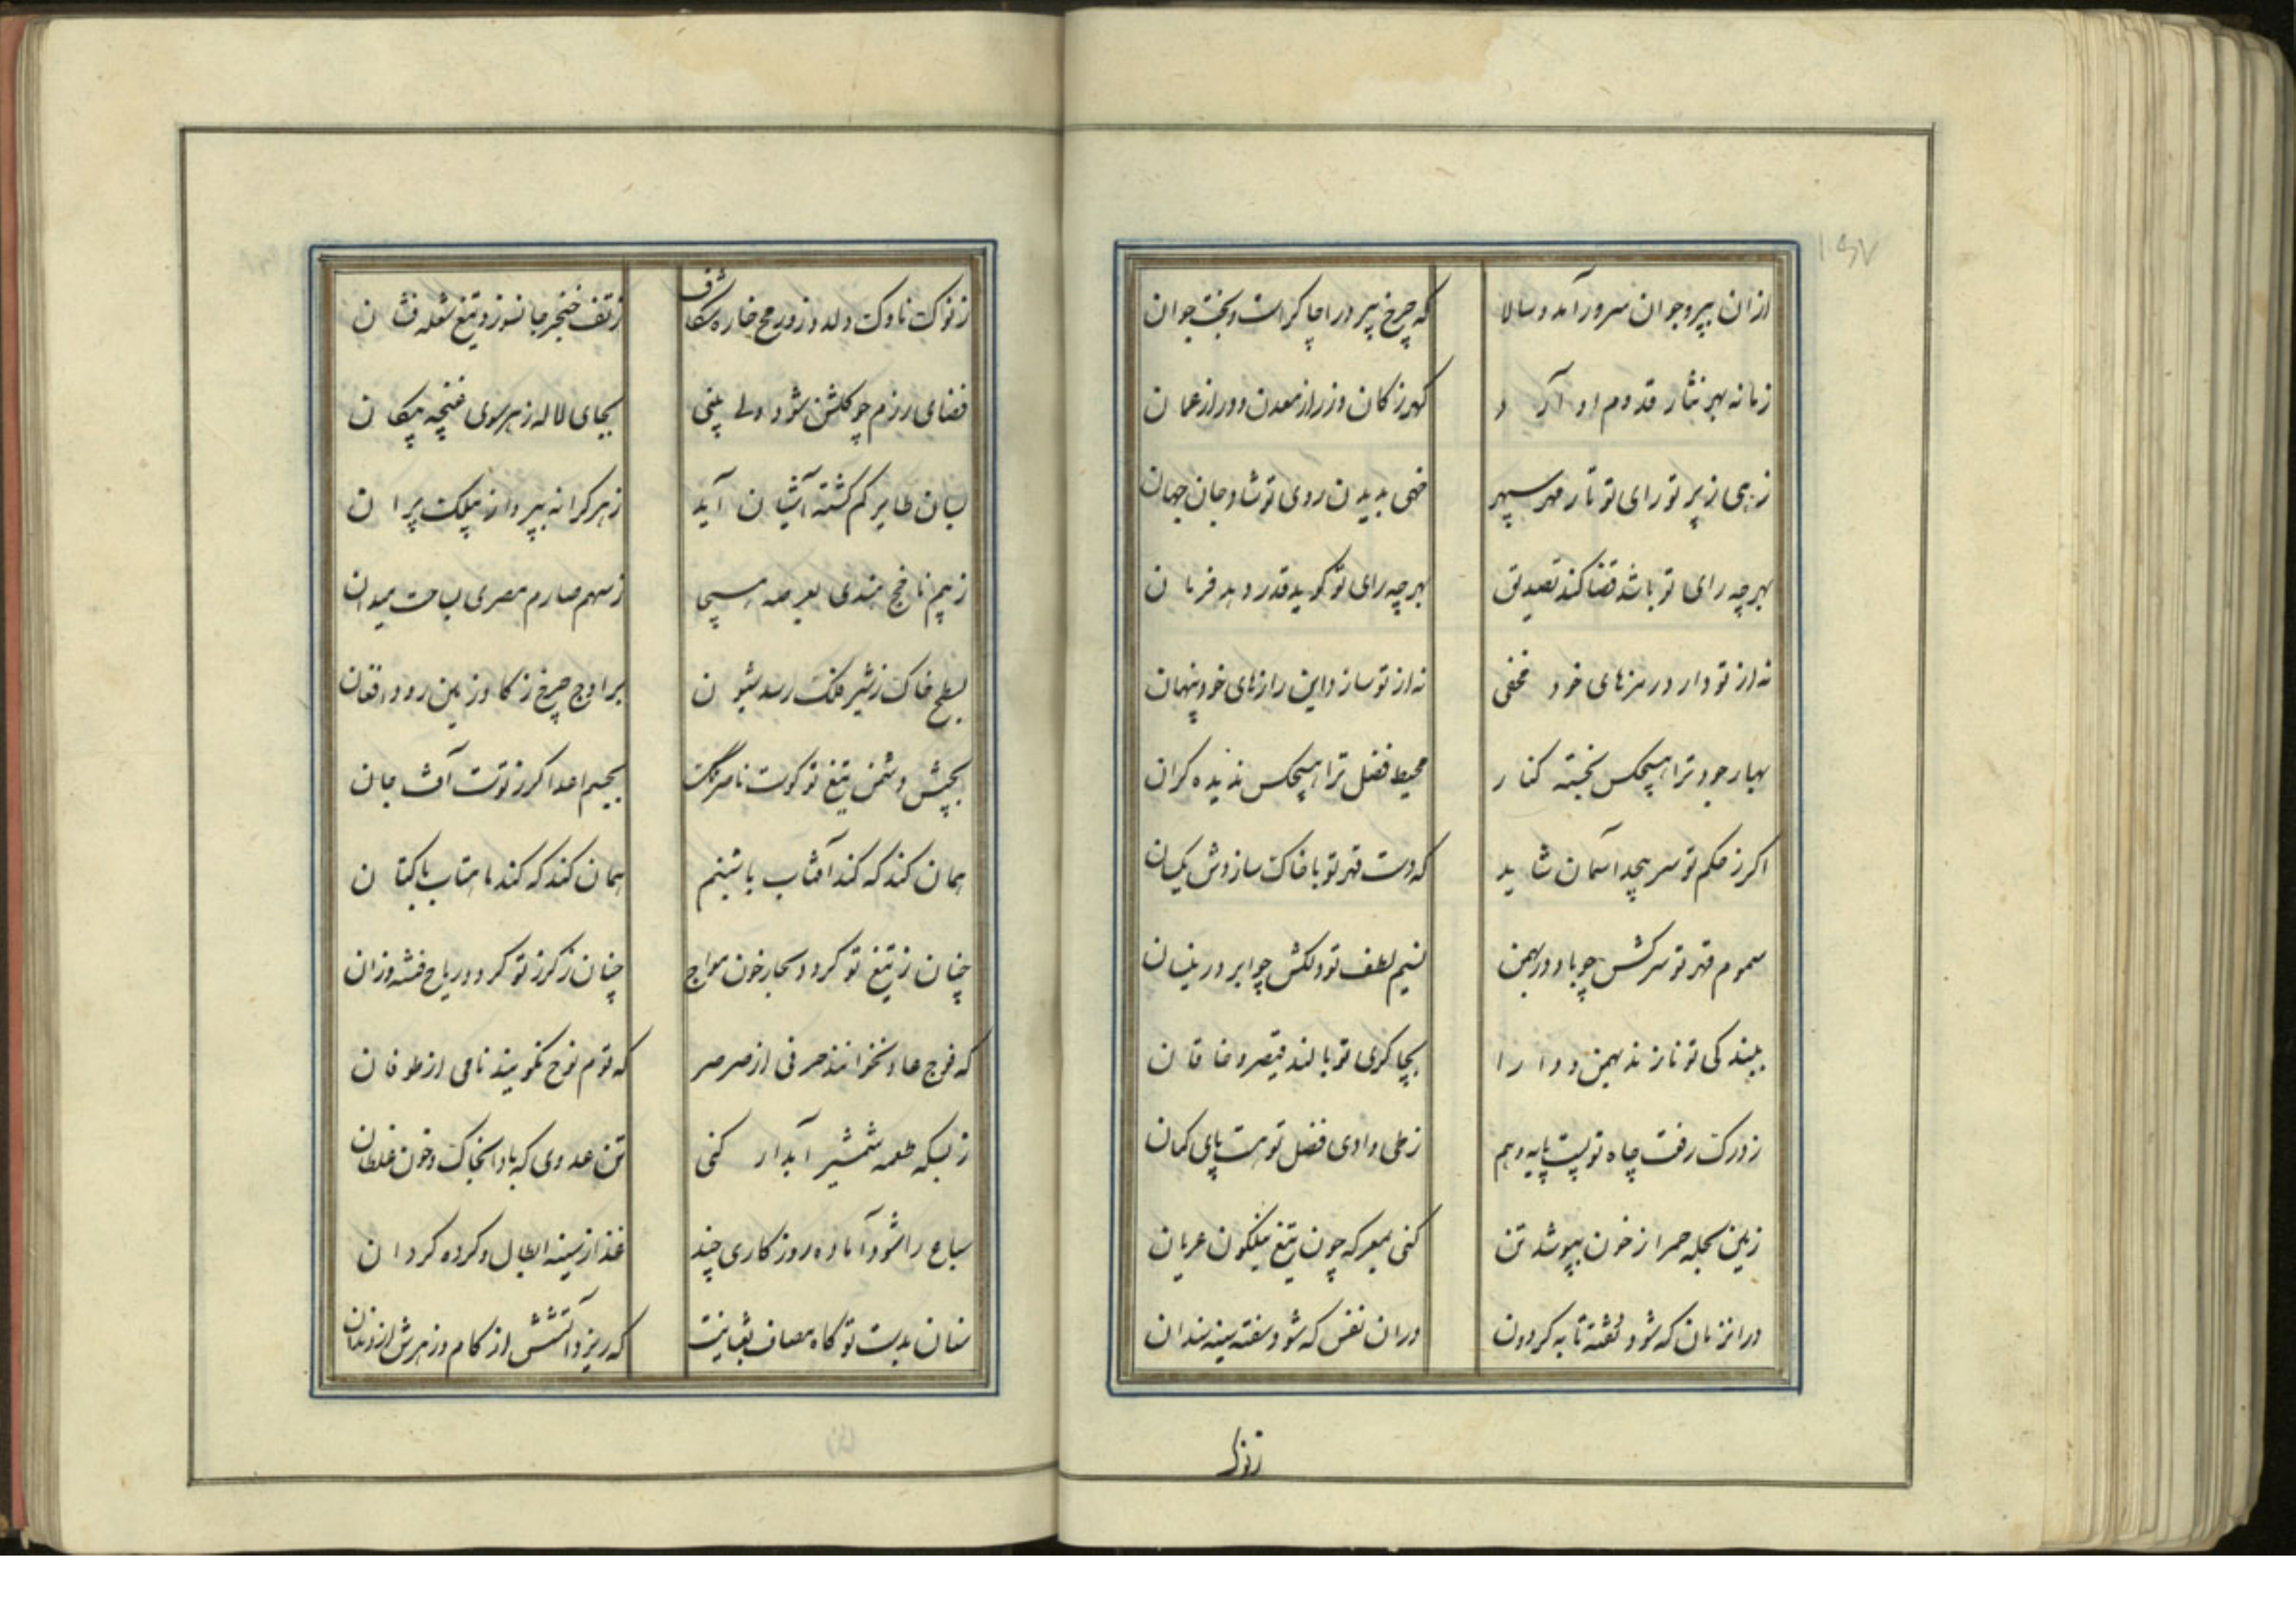 ۱۶۷
ازان پیر و جوان سرور آمد و سالار که چرخ پیر ورا چاکر است و بخت جوان
زمانه بهر نثار قدوم او آرد گهر ز کان و زر از معدن و در از عمان
زهی ز پرتو رای تو تار مهر سپهر خهی بدیدن روی تو شاد جان جهان
بهر چه رای تو باشد قضا کند تصدیق بهر چه رای تو گوید قدر دهد فرمان
نه از تو دارد رمزهای خود مخفی نه از تو سازد این رازهای خود پنهان
بهار جود ترا هیچکس نجسته کنار محیط فضل ترا هیچکس ندیده کران
اکر ز حکم تو سر پیچد آسمان شاید که دست قهر تو با خاک سازدش یکسان
سموم قهر تو سرکش چو باد در بهمن نسیم لطف تو دلکش چو ابر در نیسان
ببندکی تو نازند بهمن و دارا بچاکری تو بالند قیصر و خاقان
ز درک رفعت جاه تو پست پایه وهم ز طی وادی فضل تو سست پای کمان
زمین بحله حمرا ز خون بپوشد تن کنی بمعرکه چون تیغ نیلگون عریان
در انزمان که شود تفته تابه کردون دران نفس که شود سفته سینه سندان
ز نوک
ز نوک ناوک دلدوز و رمح خاره شکاف ز تف خنجر جانسوز و تیغ شعله فشان
فضای رزم چو کلشن شود ولی بینی بجای لاله ز هر سوی غنچه پیکان
بسان طایر کم کشته آشیان آید ز هر کرانه بپرواز بیلک پران
ز بیم ناچخ هندی بعرصه هیجا ز سهم صارم مصری بساحت میدان
بسطح خاک ز شیر فلک رسد شیون بر اوج چرخ ز کاو زمین رود افغان
بچشم دشمن تیغ تو کوست ناصر ملک بجسم اعدا کرز توست آفت جان
همان کند که کند آفتاب با شبنم همان کند که کند ماهتاب با کتان
چنان ز تیغ تو کردد بحار خون مواج چنان ز کرز تو کردد ریاح فتنه وزان
که فوج عاد نخوانند حرفی از صرصر که قوم نوح نکویند نامی از طوفان
ز بسکه طعمه شمشیر آبدار کنی تن عدوی که بادا بخاک و خون غلطان
سباع را شود آماده روزکاری چند غذا از سینه ابطال و کرده کردان
سنان بدست تو کاه مصاف ثعبانیست که ریزد آتشش از کام و زهرش از دندان